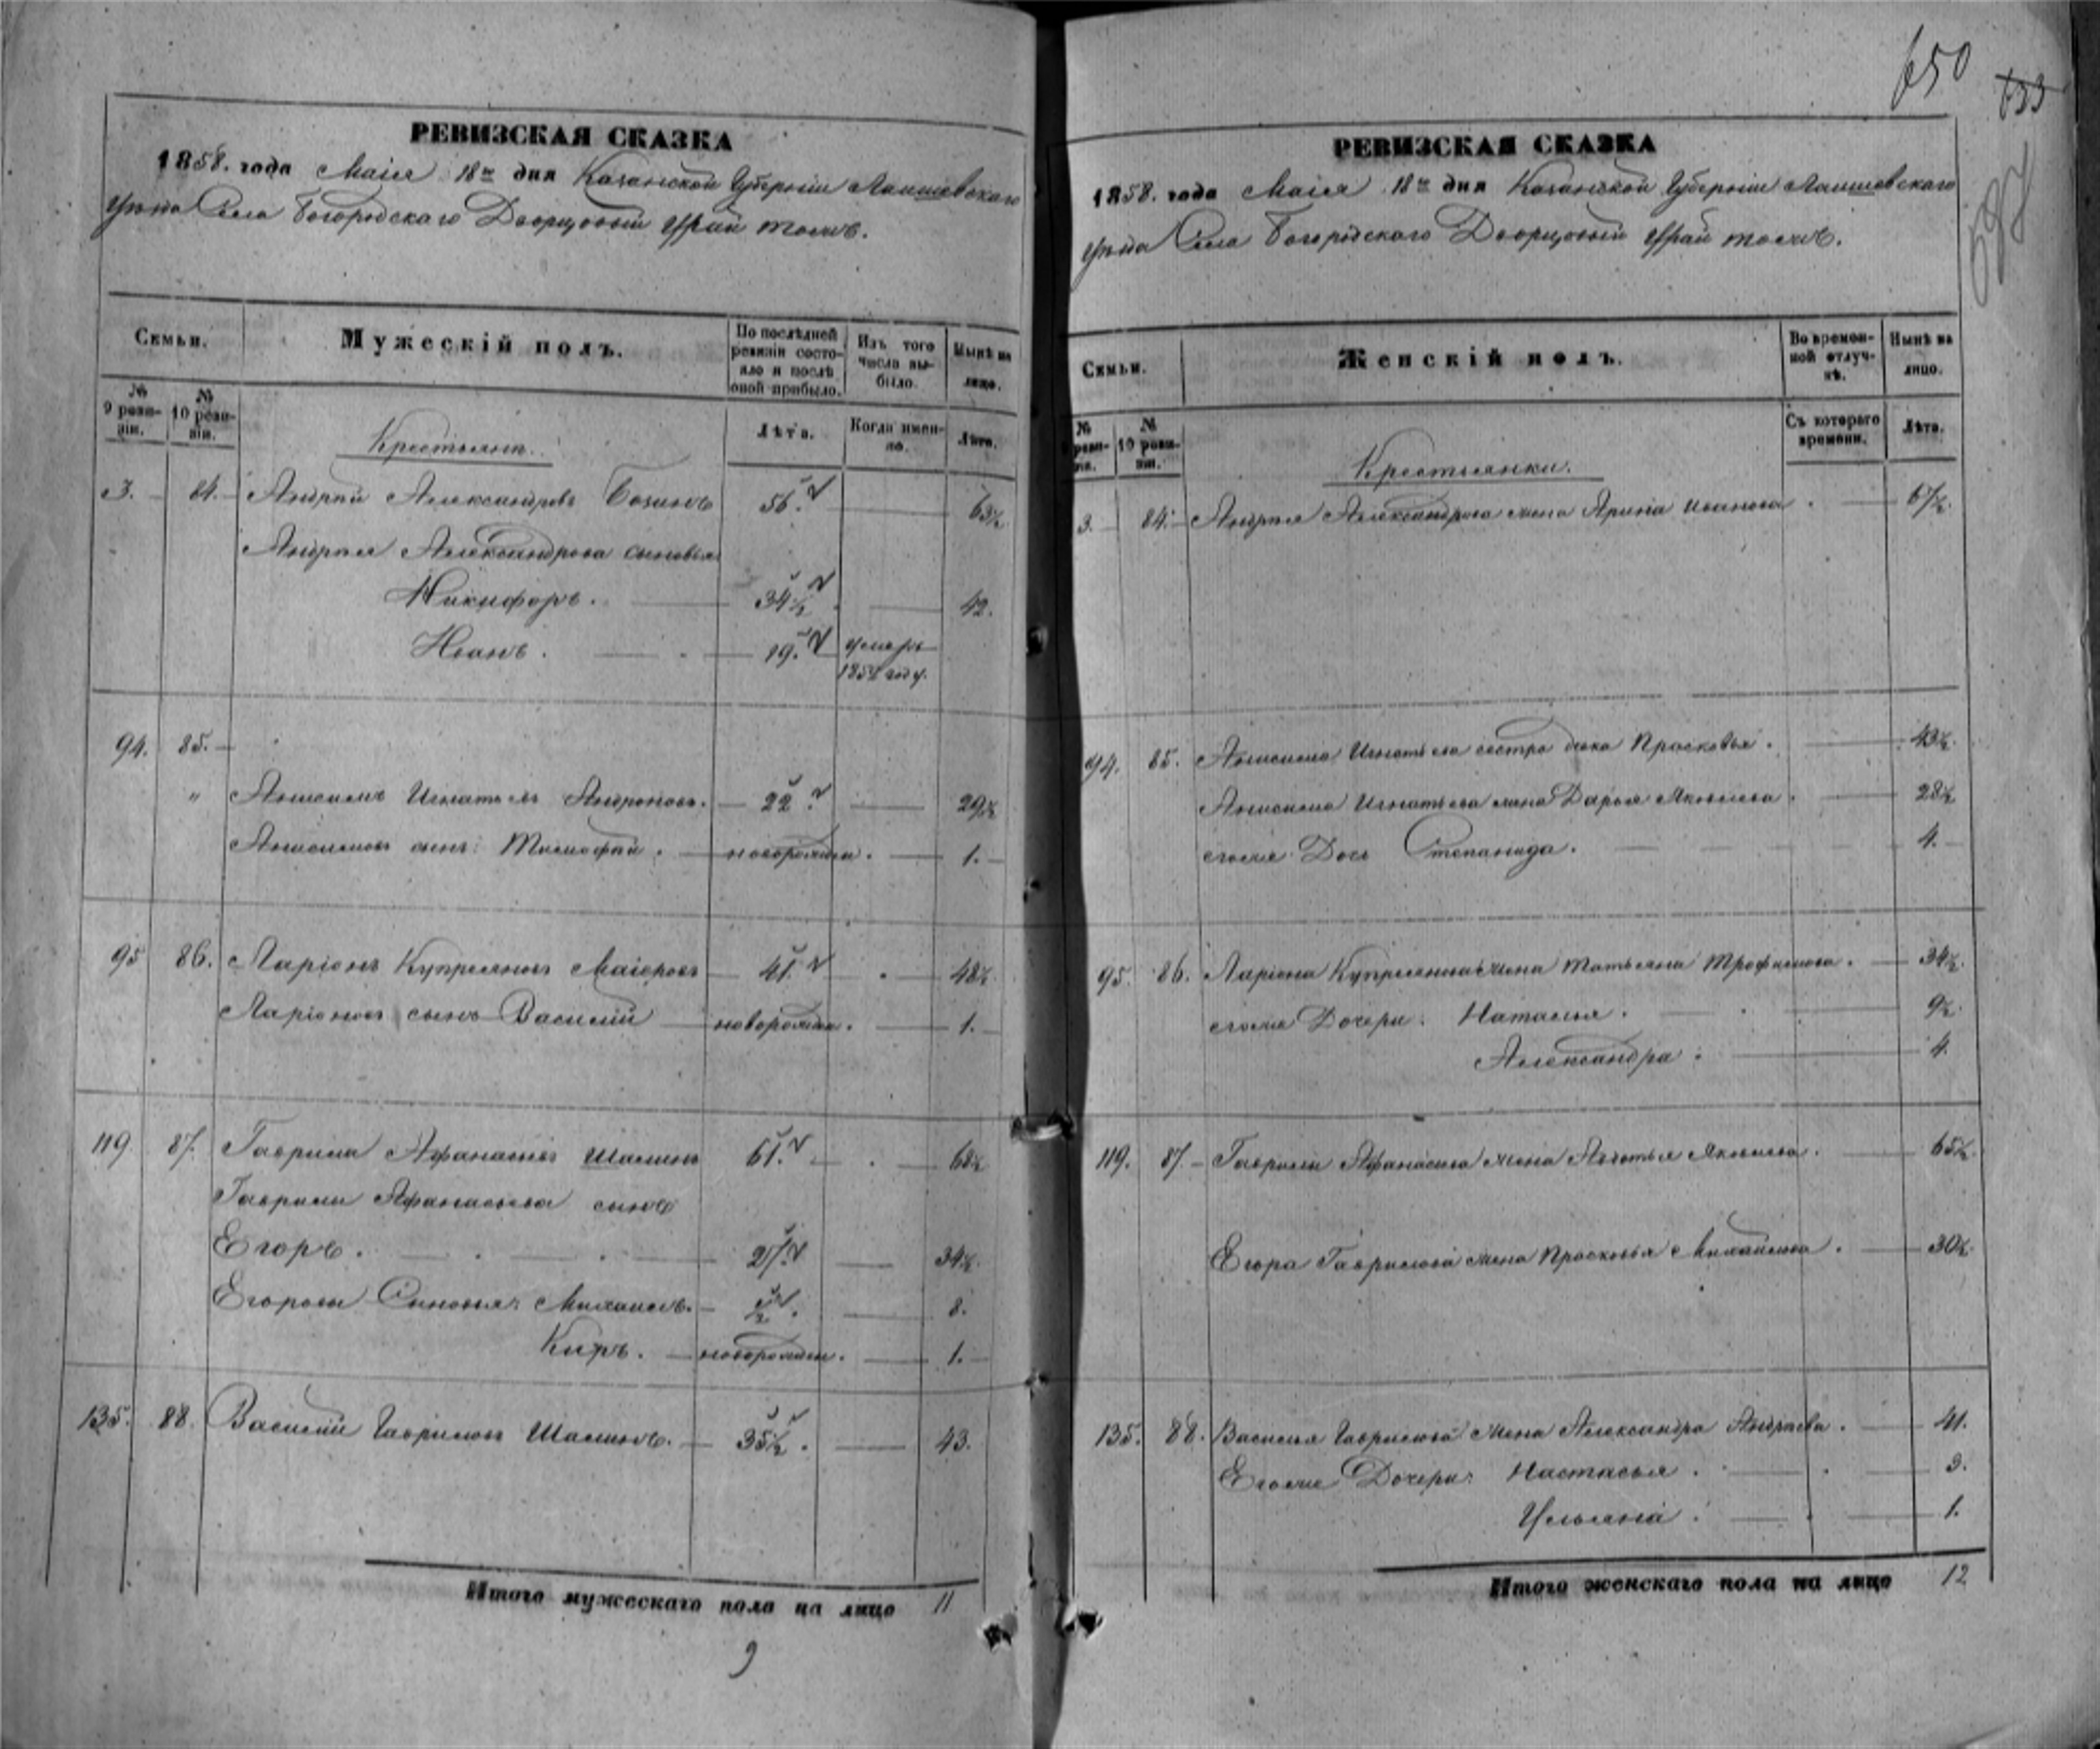 650
633
РЕВИЗСКАЯ СКАЗКА
1858. года Маія 18го дня Казанской Губерніи Лаишевскаго
уѣзда Села Богородскаго Дворцовый Урай тожъ.
Семьи.
Мужескій полъ.
По послѣдней ревизіи состояло и послѣ оной прибыло.
Изъ того числа выбыло.
Нынѣ на лицо.
№ 9 ревизіи.
№ 10 ревизіи.
Крестьяне.
Лѣта.
Когда именно.
Лѣта.
3. 84. Андрей Александровъ 56. 63½
Андрея Александрова сыновья
Никифоръ. 34½ 42.
Иванъ. 19. умеръ
году.
94. 85.
" Анисимъ Игнатьевъ Андроновъ. 22. 29½
Анисимовъ сынъ: Тимофей. новорожден. 1.
95 86. Ларіонъ Купреяновъ Маіоровъ 41. 48½
Ларіоновъ сынъ Василій новорожден. 1.
119 87. Гаврила Афанасьевъ Шалинъ 61. 68½
Гаврилы Афанасьева сынъ
Егоръ. 27. 34½
Егоровы Сыновья: Михаилъ. ½. 8.
Киръ. новорожден. 1.
135. 88. Василій Гавриловъ Шалинъ. 35½. 43.
Итого мужескаго пола на лицо 11
9
РЕВИЗСКАЯ СКАЗКА
1858. года Маія 18го дня Казанской Губерніи Лаишевскаго
уѣзда Села Богородскаго Дворцовый Урай тожъ.
Семьи.
Женскій полъ.
Во временной отлучкѣ.
Нынѣ на лицо.
№ 9 ревизіи.
№ 10 ревизіи.
Крестьянки.
Съ котораго времени.
Лѣта.
3. 84. Андрея Александрова жена Арина Иванова 67½
94. 85. Анисима Игнатьева сестра дѣвка Прасковья. 43½
Анисима Игнатьева жена Дарья Яковлева. 28½
егоже Дочь Степанида. 4.
95. 86. Ларіона Купреянова жена Татьяна Трофимова. 34½
егоже Дочери: Наталья. 9½
Александра. 4.
119. 87. Гаврилы Афанасьева жена Авдотья Яковлева. 65½
Егора Гаврилова жена Прасковья Михайлова. 30½
135. 88. Василья Гаврилова жена Александра Андреева. 41.
Егоже Дочери: Настасья. 3.
Ульяна. 1.
Итого женскаго пола на лицо 12